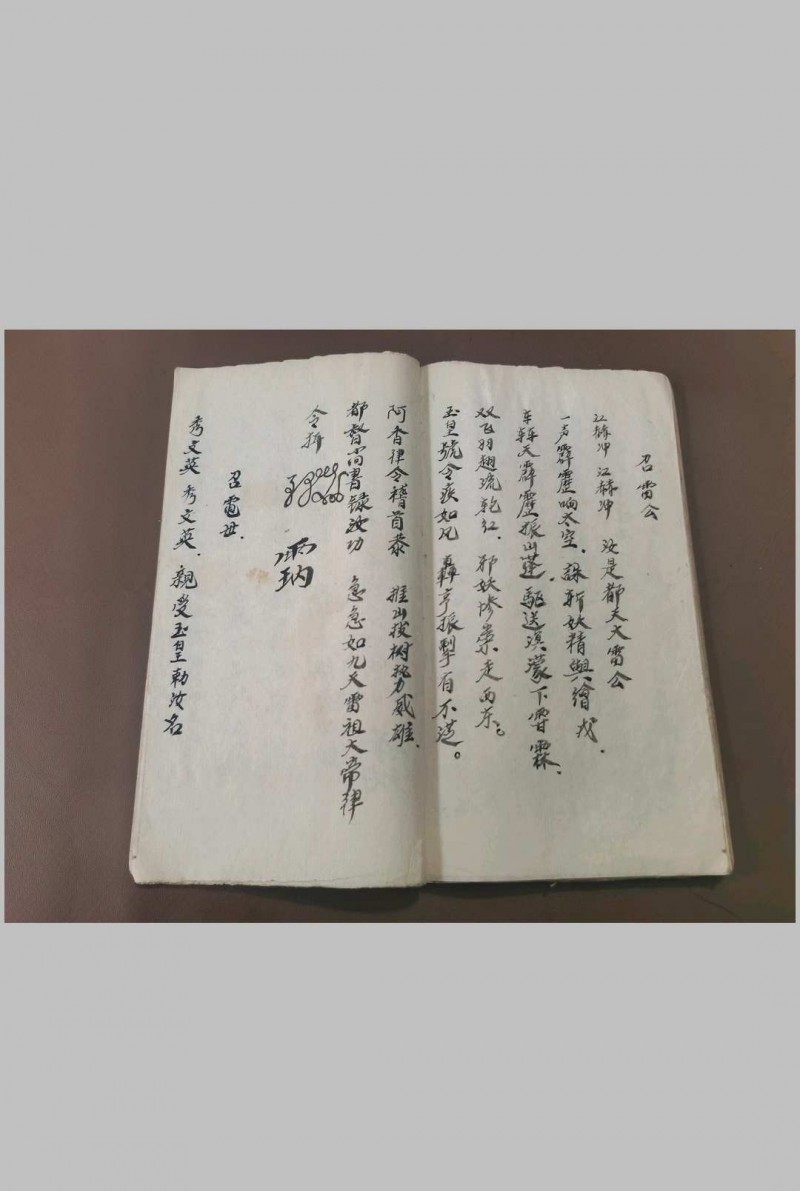 召雷公
江赫冲 江赫冲 汝是都天大雷公
一声霹雳响太空、誅斩妖精與
车轉天霹靂振山蓬、驅送溟濛下雪霖、
双飞羽翅流乾红、邪妖惨崇走西东。
玉皇號令疾如风 轟亨振擊有不
阿香律令稽首恭 推山拔樹势力威雄、
都督尚書録汝功 急急如九天雷祖大帝律
令摄
召電母、
秀文英 秀文英、親受玉皇勅汝名